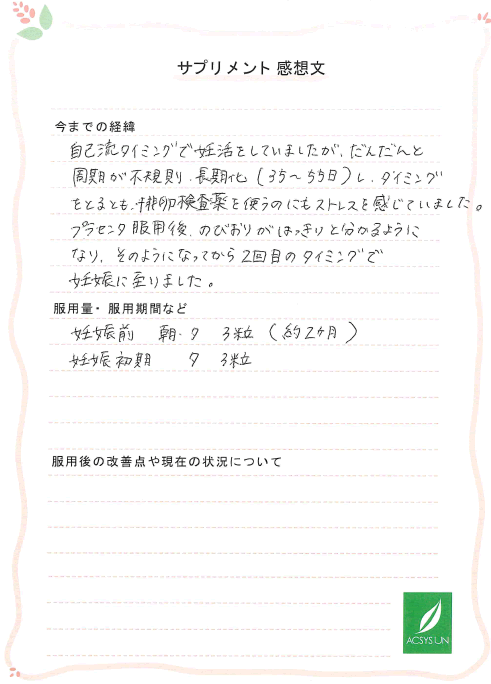 サプリメント 感想文
今までの経緯
自己流タイミングで妊活をしていましたが、だんだんと
周期が不規則・長期化(35～55日)し、タイミング
をとるとも、排卵検査薬を使うのにもストレスを感じていました。
プラセンタ服用後、のびおりがはっきりと分かるように
なり、そのようになってから2回目のタイミングで
妊娠に至りました。
服用量・服用期間など
妊娠前 朝・夕 3粒 (約2ヶ月)
妊娠初期 夕 3粒
服用後の改善点や現在の状況について
ACSYSUN